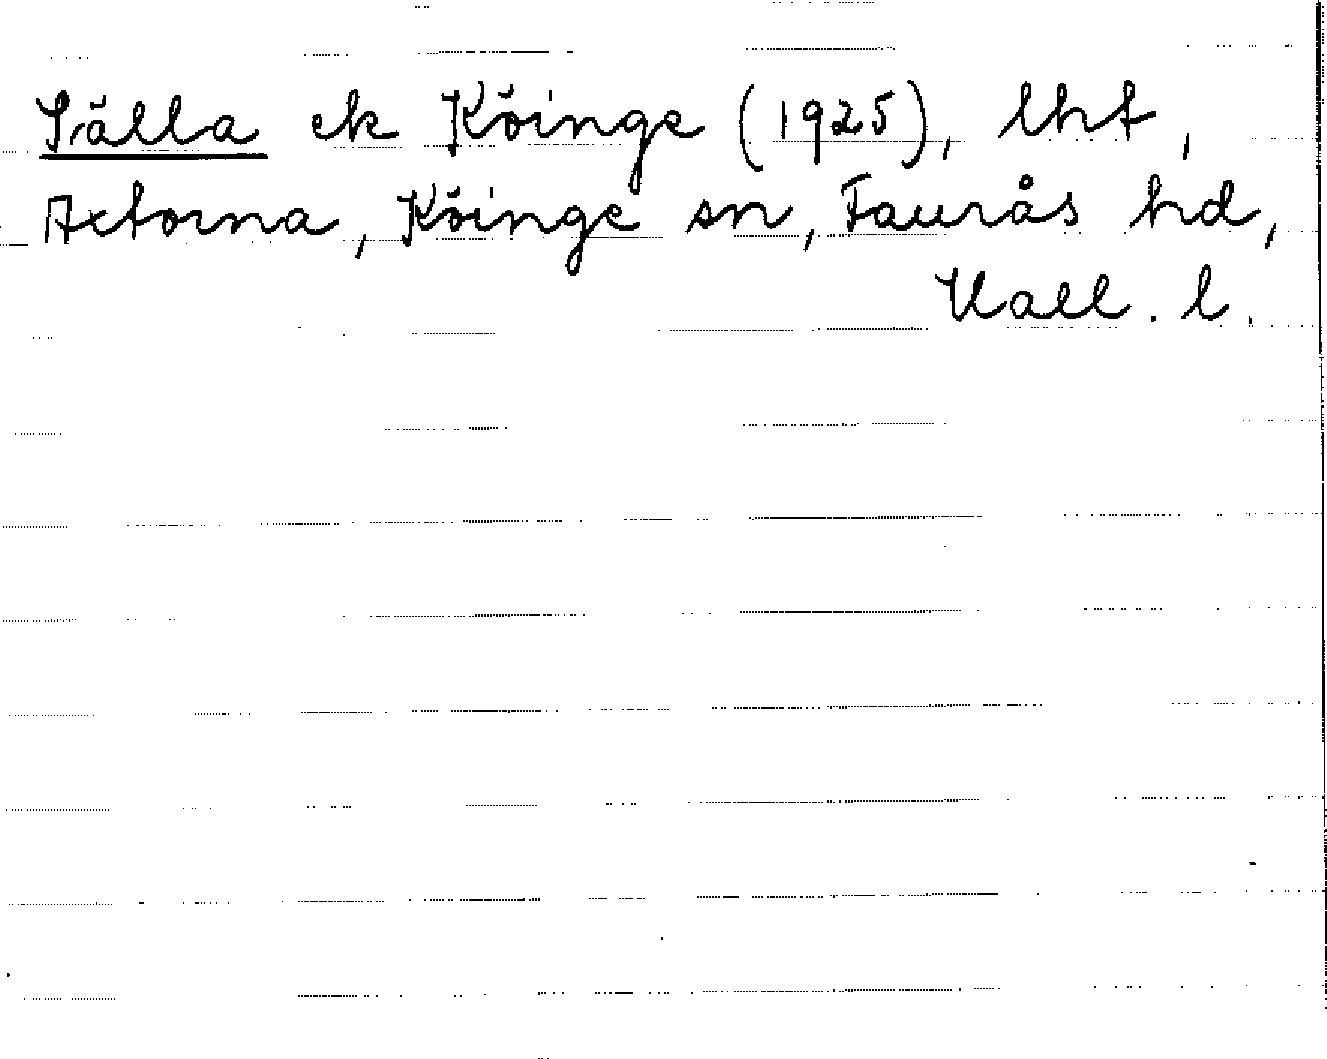 Sälla ek Köinge (1925), lht,
Axtorna, Köinge sn, Faurås hd,
Hall. l.